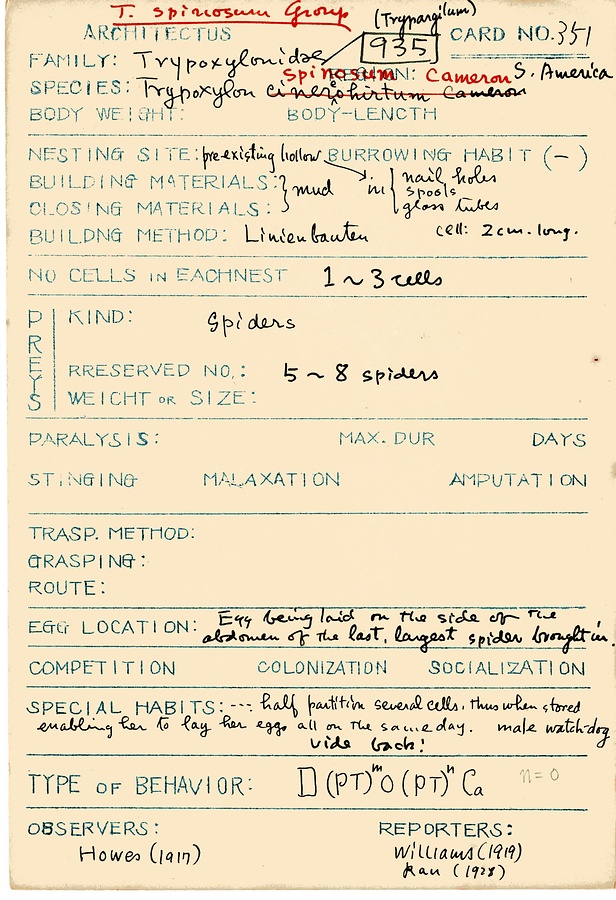 T. spinosum Group
(Trypargilum)
ARCHITECTUS
935
CARD NO. 351
FAMILY: Trypoxylonidae
spinosum Cameron S. America
SPECIES: Trypoxylon cinereohirtum Cameron
BODY WEIGHT: BODY-LENGTH
NESTING SITE: pre-existing hollow BURROWING HABIT (-)
BUILDING MATERIALS: } mud in { nail holes
spools
CLOSING MATERIALS: glass tubes
BUILDNG METHOD: Linienbauten cell: 2cm. long.
NO CELLS IN EACHNEST 1~3 cells
PREYS
KIND: Spiders
RRESERVED NO.: 5~8 spiders
WEIGHT OR SIZE:
PARALYSIS: MAX. DUR DAYS
STINGING MALAXATION AMPUTATION
TRASP. METHOD:
GRASPING:
ROUTE:
EGG LOCATION: Egg being laid on the side of the
abdomen of the last, largest spider brought in.
COMPETITION COLONIZATION SOCIALIZATION
SPECIAL HABITS: --- half partition several cells, thus when stored
enabling her to lay her eggs all on the same day. male watch-dog
vide back!
TYPE OF BEHAVIOR: D (PT)ᵐ O (PT)ⁿ Ca n=0
OBSERVERS: REPORTERS:
Howes (1917) Williams (1919)
Rau (1928)